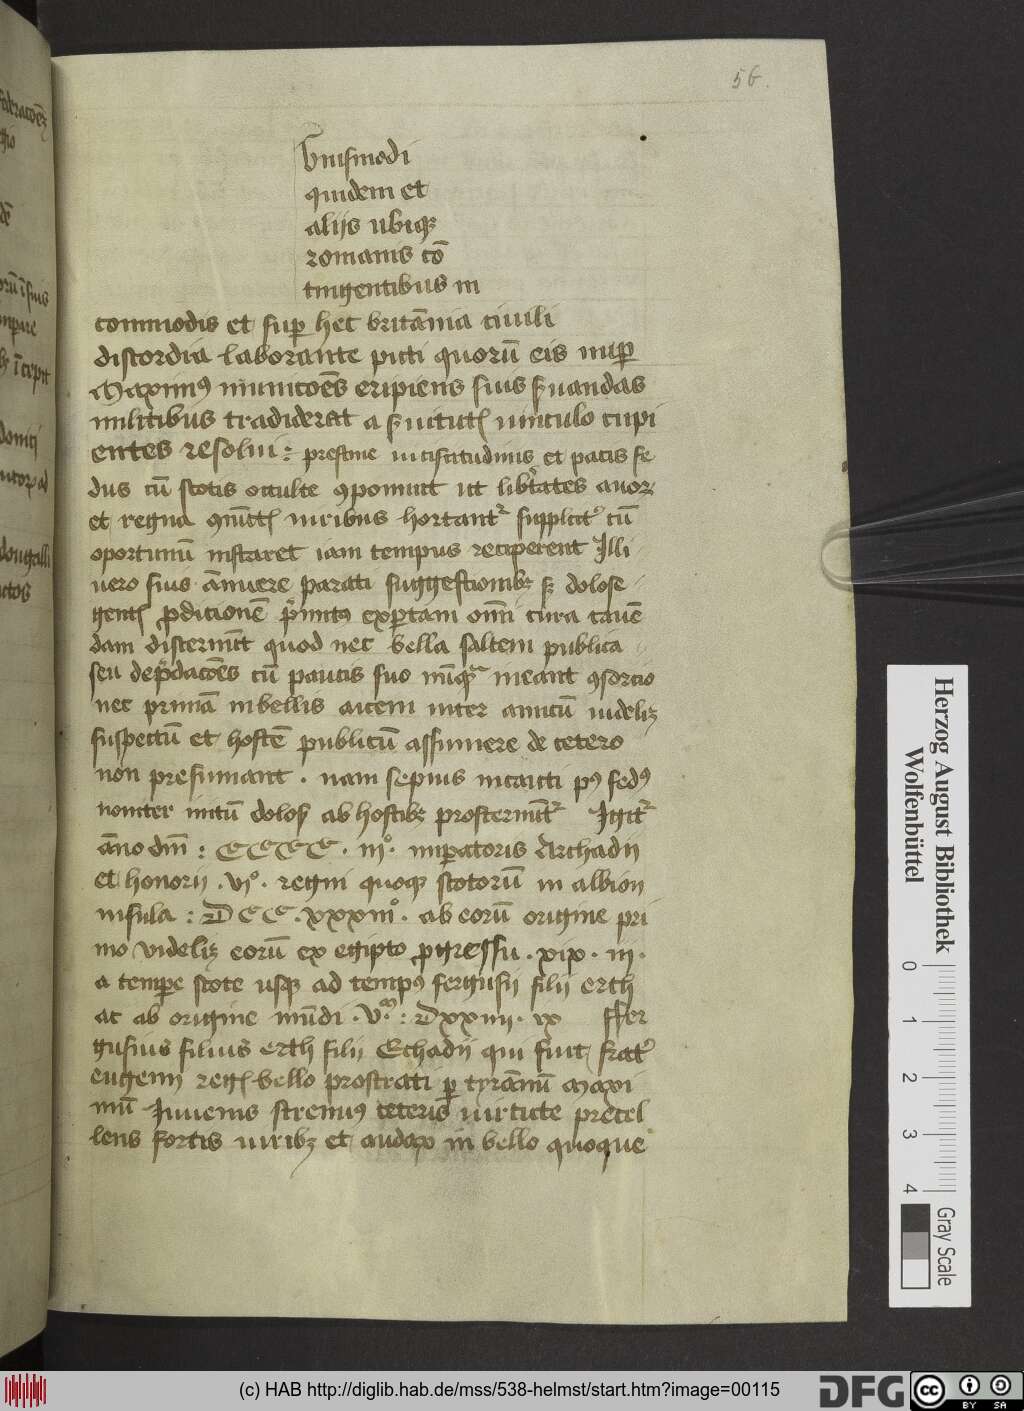 56.
vniusmodi
quidem et
aliis ubiq
romanis cō
tingentibus in
commodis et sup hec britānia ciuili
discordia laborante picti quorū eis nup
Maximꝰ municoēs eripiens suis suandas
militibus tradiderat a suitut vinculo cupi
entes resolui : pristine vicissitudinis et pacis fe
dus cū scotis occulte ꝯponunt ut libtates auor
et regna ꝯiūct viribus hortant supplicit cū
oportunū instaret iam tempus reciperent Illi
uero suis ānuere parati suggestionibꝫ sꝫ dolose
gent ꝓdicionē pmitus expertam omī cura cauē
dam discernūt quod nec bella saltem publica
seu depdacoēs cū paucis suo nūqꝫ ineant ꝯsorcio
nec priuā inbellis autem inter amicū uidelꝫ
suspectū et hostē publicū assumere de cetero
non presumant . nam sepius incauti pꝰ fedꝰ
nouiter initū dolos ab hostibꝫ prosternūt Igit
āno dm̄ : CCCC . iijº . impatoris Archadij
et honorij . vjº . regni quoqꝫ scotorū in albion
insula : DCC . xxxiijº . ab eorū origine pri
mo videlꝫ eorū ex egipto ꝓgressu . xix . iij .
a tempe scote usqꝫ ad tempꝰ fergusij filij erth
ac ab origine mūdi . V.m : Dxxiiij . ix ffer
gusius filius erth filij Echadij qui fuit frat
eugenij reg bello prostrati ꝑ tyrānū maxi
mū Iuuenis strenuꝰ ceteris uirtute precel
lens fortis viribꝫ et audax in bello quoque
Herzog August Bibliothek
Wolfenbüttel
0 1 2 3 4
Gray Scale
(c) HAB http://diglib.hab.de/mss/538-helmst/start.htm?image=00115
DFG
cc
BY SA